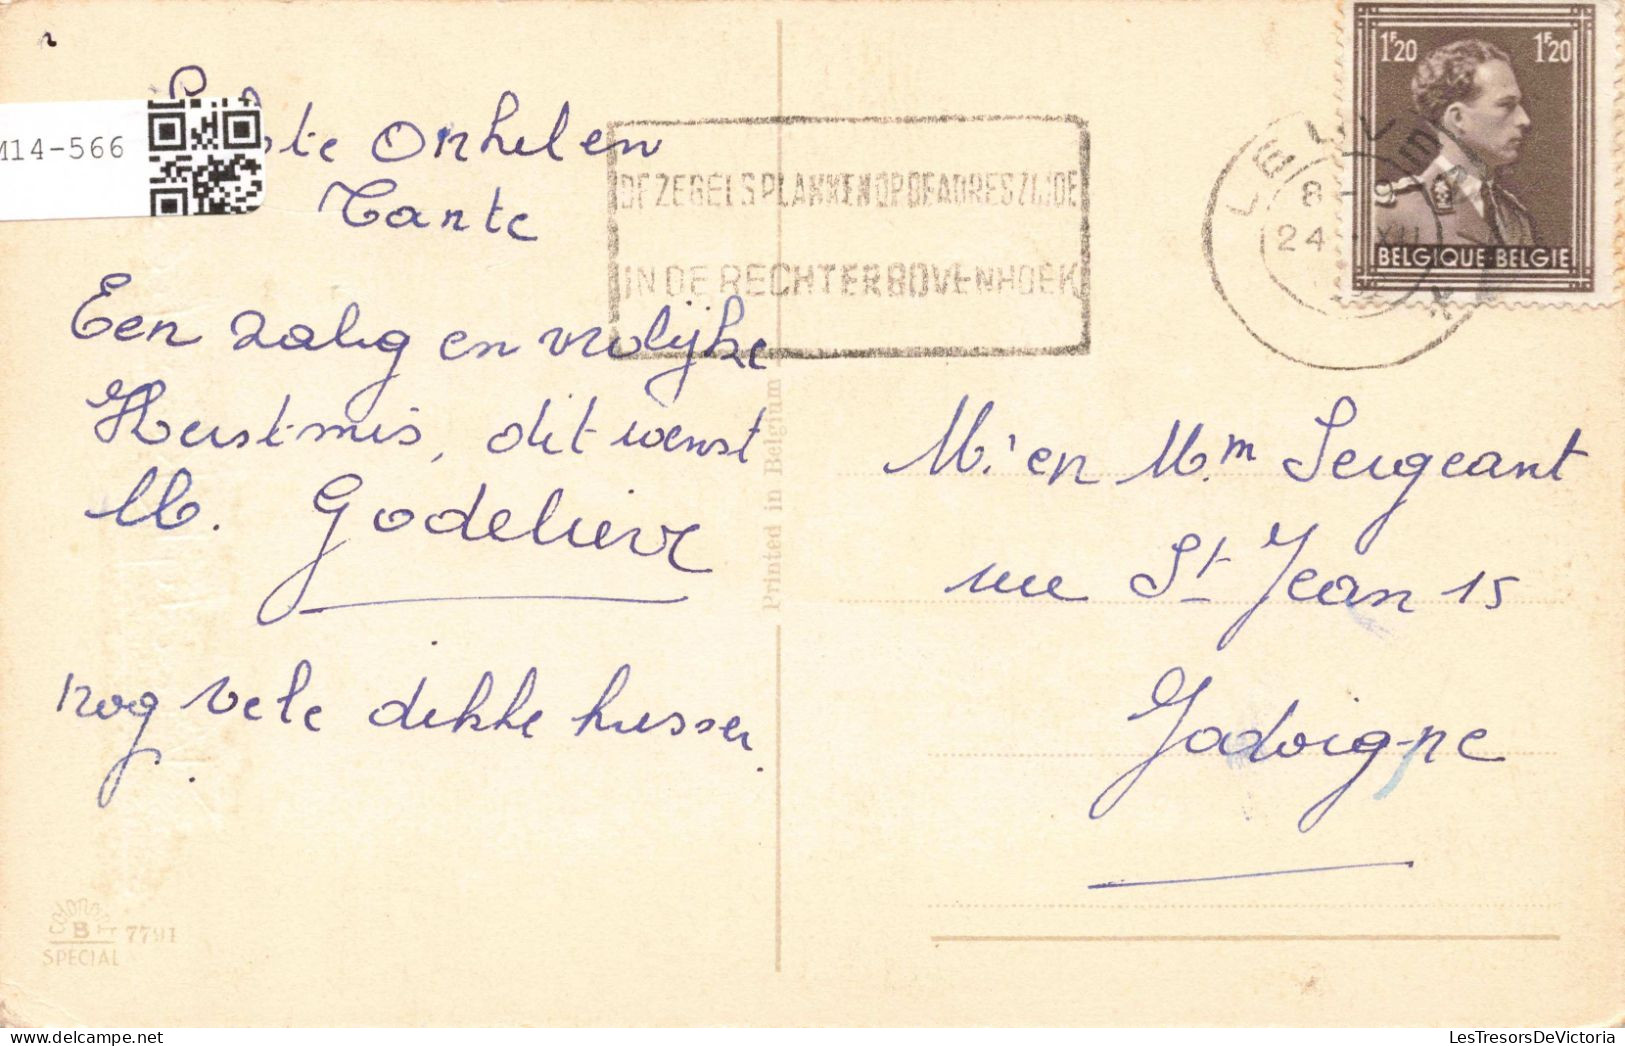 M14-566
Onkel en
Tante
Een zalig en vrolijke
Kerstmis, dit wenst
M. Godelieve
nog vele dikke kussen.
DE ZEGELS PLAKKEN OP DE ADRESZIJDE
IN DE RECHTERBOVENHOEK
8-9
24 XII
1F20 1F20
BELGIQUE-BELGIE
Mr en Mm Sergeant
rue St Jean 15
Jodoigne
Printed in Belgium
B 7791
SPECIAL
LesTresorsDeVictoria.com